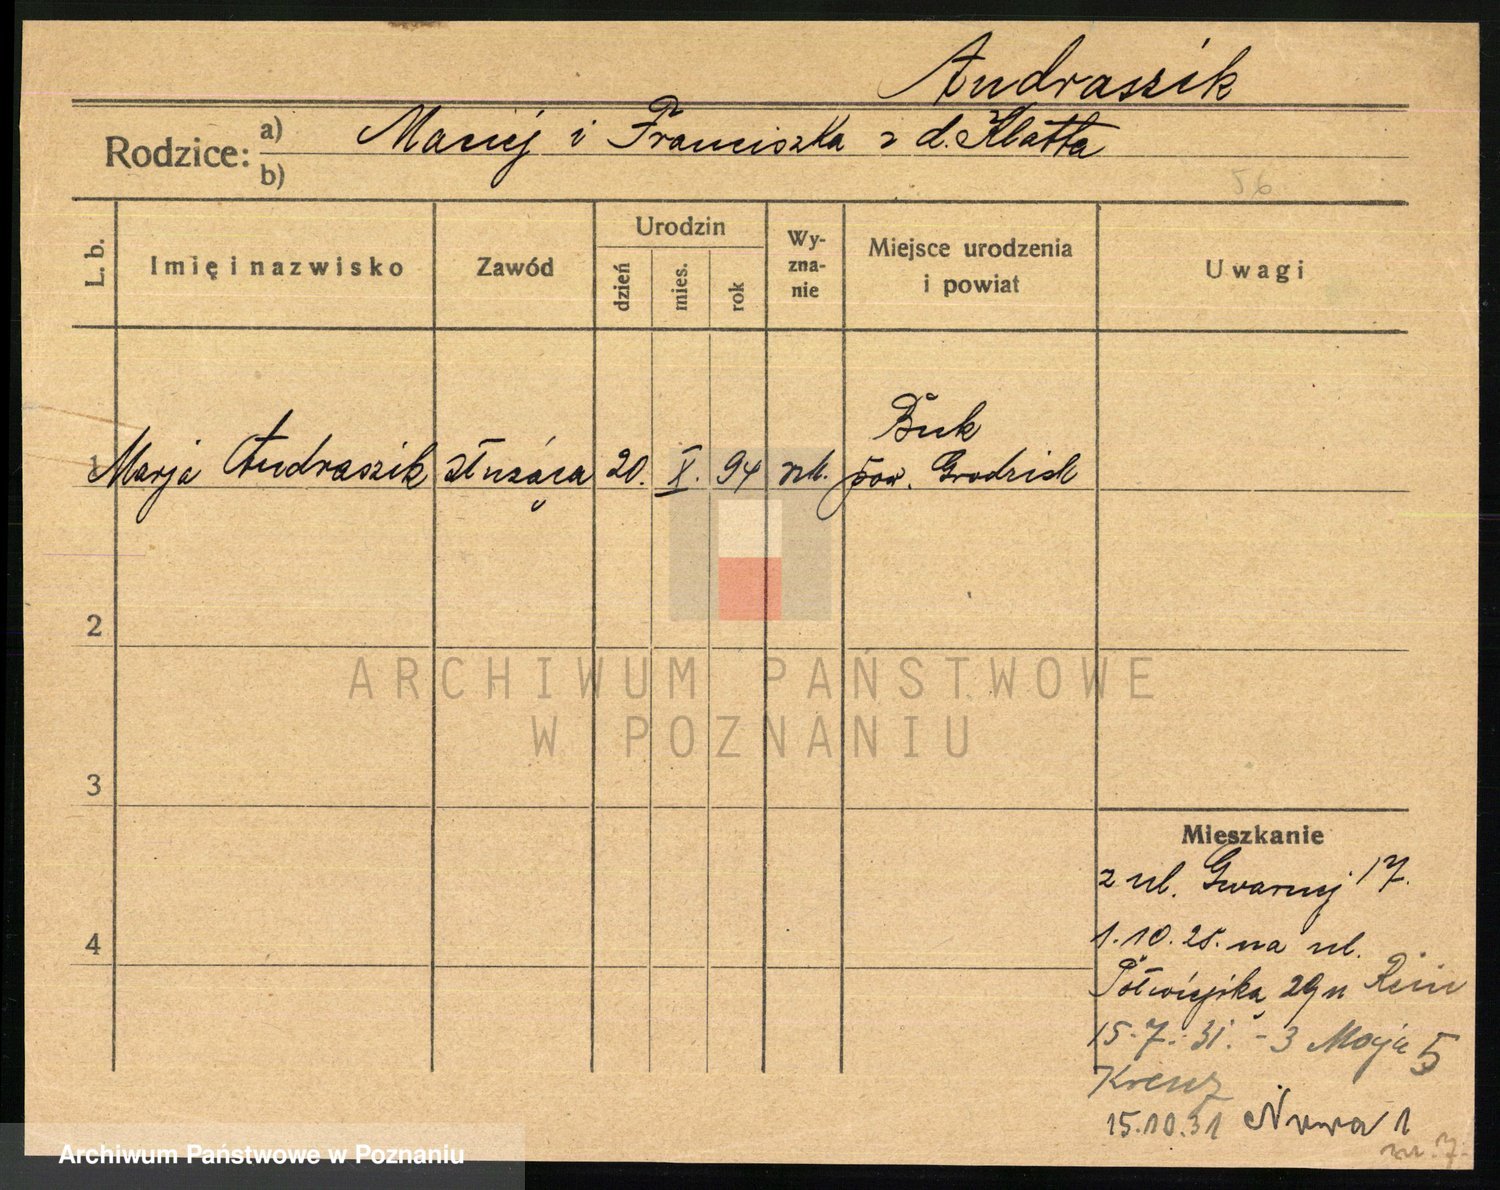 Andraszik
Rodzice: a) Maciej i Franciszka z d. Klatta
b)
56
L. b.
Imię i nazwisko
Zawód
Urodzin
dzień
mies.
rok
Wy-
zna-
nie
Miejsce urodzenia
i powiat
Uwagi
Buk
1 Marja Andraszik służąca 20. X. 94 rzk. pow. Grodzisk
2
3
4
ARCHIWUM PAŃSTWOWE
W POZNANIU
Mieszkanie
z ul. Gwarnej 17.
1.10.25. na ul.
Półwiejską 29 u
15.7.31. - 3 Maja 5
Kreuz
15.10.31 Nowa 1
m. 7.
Archiwum Państwowe w Poznaniu